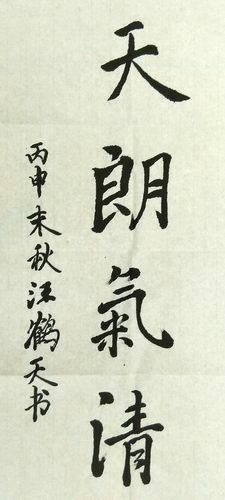 天朗氣清
丙申末秋江鶴天书